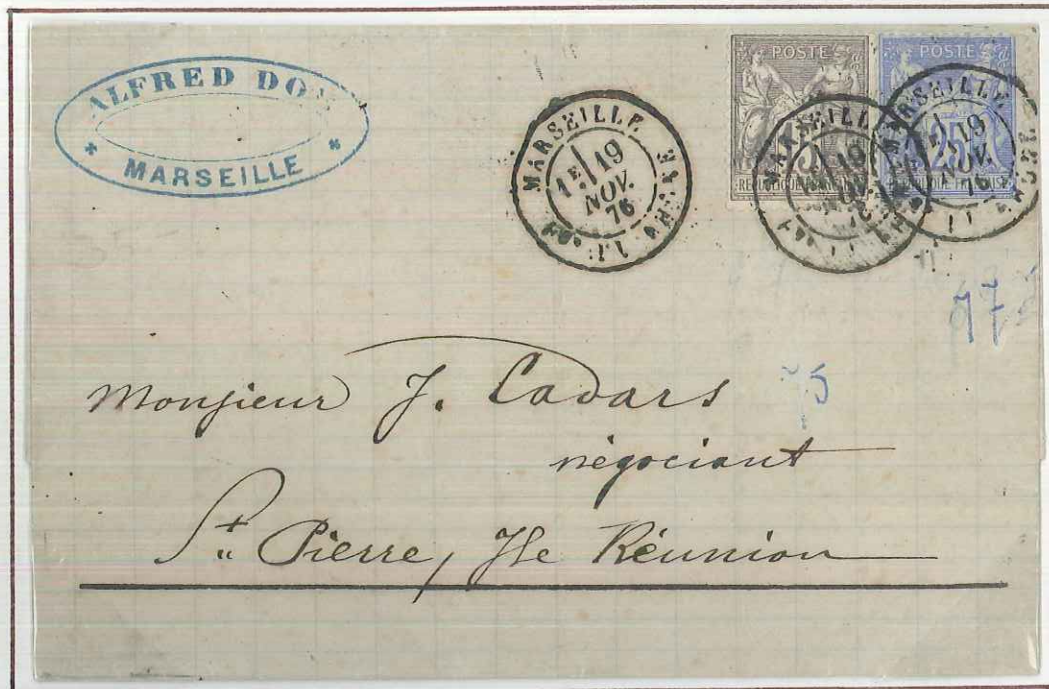 ALFRED
* MARSEILLE *
MARSEILLE
1E 19
NOV.
76
POSTE
POSTE
25
MARSEILLE
19
NOV.
76
MARSEILLE
19
NOV.
76
77
75
Monsieur J. Cadars
négociant
St Pierre, Ile Réunion